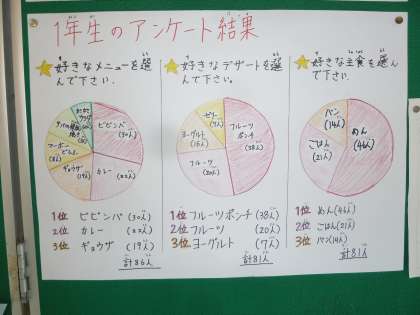 1年生のアンケート結果
☆好きなメニューを選んで下さい.
ビビンバ
(30人)
カレー
(22人)
ギョウザ
(19人)
マーボーどんぶり
(8人)
1位 ビビンバ (30人)
2位 カレー (22人)
3位 ギョウザ (19人)
計86人
☆好きなデザートを選んで下さい。
フルーツポンチ
(38人)
フルーツ
(20人)
ヨーグルト
(16人)
ゼリー
(7人)
1位 フルーツポンチ (38人)
2位 フルーツ (20人)
3位 ヨーグルト (7人)
計81人
☆好きな主食を選んで下さい.
めん
(46人)
ごはん
(21人)
パン
(14人)
1位 めん(46人)
2位 ごはん(21人)
3位 パン(14人)
計81人